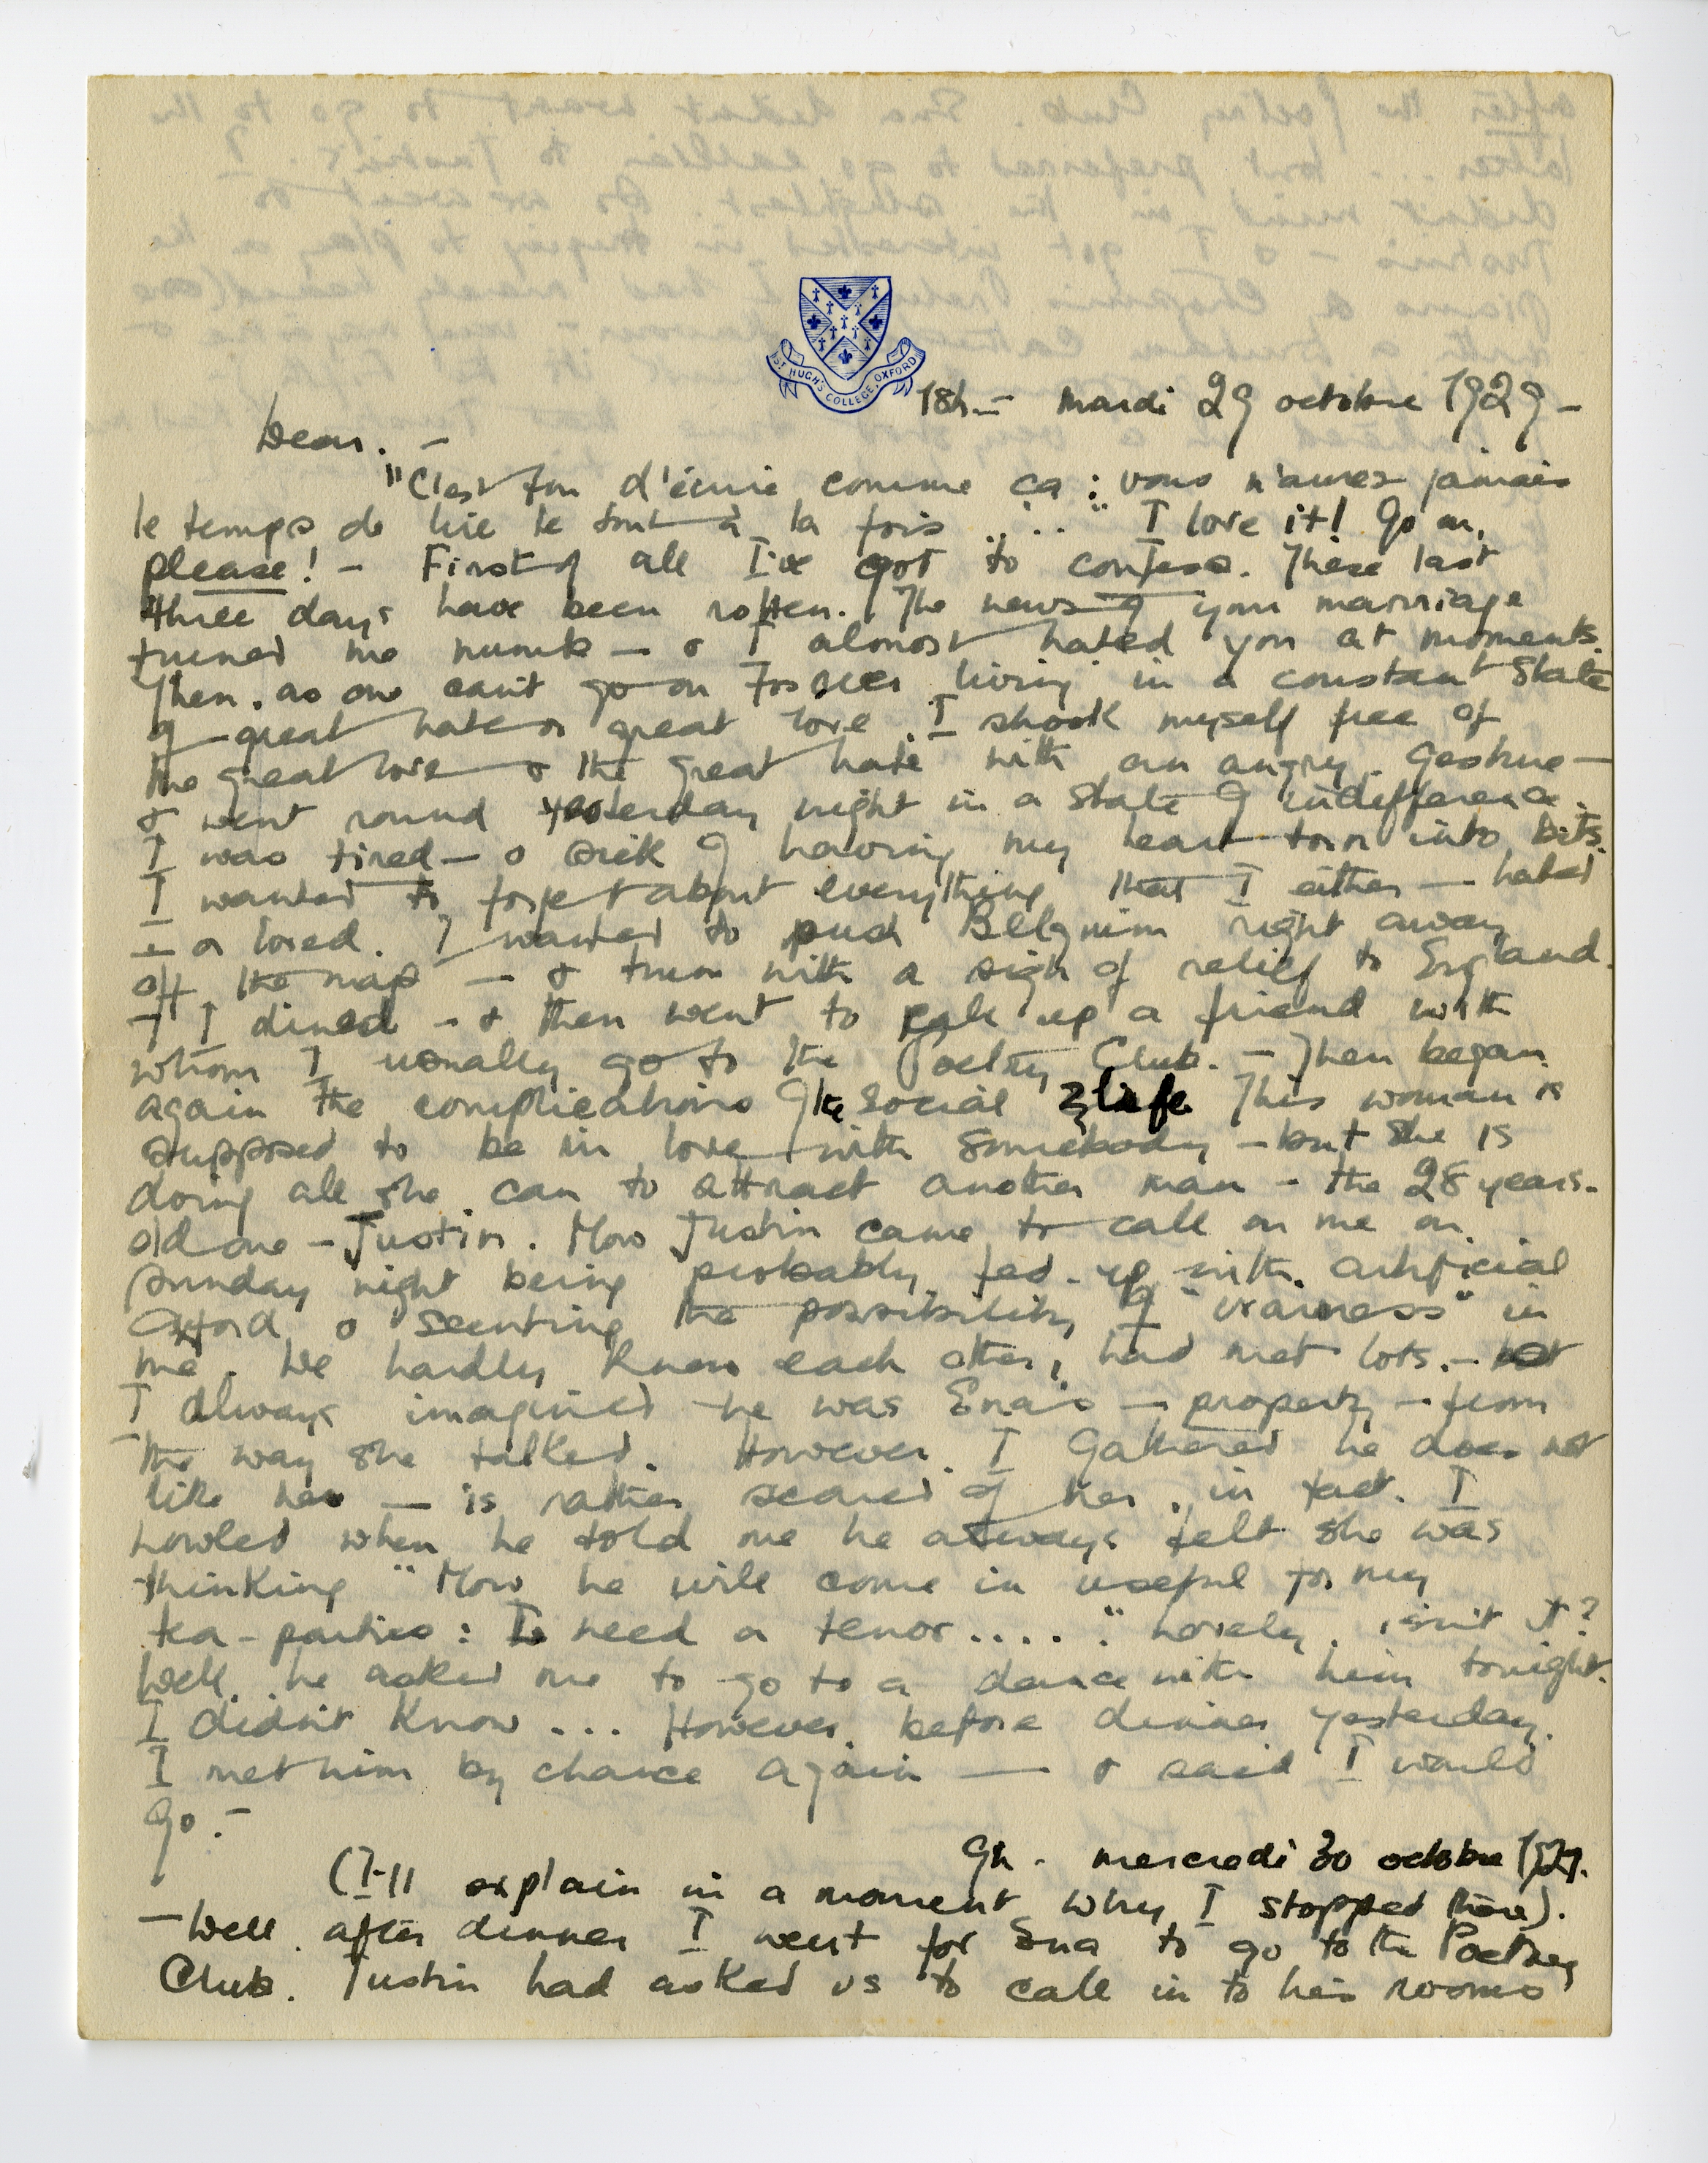 ST HUGH'S COLLEGE, OXFORD
18h.— mardi 29 octobre 1929 —
Dear. —
"C'est fou d'écrire comme ça : vous n'aurez jamais
le temps de lire le tout à la fois ...." I love it! Go on,
please! — First of all I've got to confess. These last
three days have been rotten. The news of your marriage
turned me numb — & I almost hated you at moments.
Then, as one can't go on forever living in a constant state
of great hate or great love, I shook myself free of
the great love & the great hate with an angry gesture —
& went round yesterday night in a state of indifference.
I was tired — & sick of having my heart torn into bits.
I wanted to forget about everything that I either — hated
— or loved. I wanted to push Belgium right away
off the map — & turn with a sigh of relief to England.
— I dined — & then went to pick up a friend with
whom I usually go to the Poetry Club. — Then began
again the complications of the social life. This woman is
supposed to be in love with somebody — but she is
doing all she can to attract another man — the 28 years-
old one — Justin. Now Justin came to call on me on
Sunday night being probably fed-up with artificial
Oxford & scenting the possibility of "vrainess" in
me. We hardly knew each other, had met lots. — but
I always imagined he was Ena's — property — from
the way she talked. However, I gathered he does not
like her — is rather scared of her, in fact. I
howled when he told me he always felt she was
thinking "Now he will come in useful for my
tea-parties : I need a tenor ...." Lovely, isn't it?
Well, he asked me to go to a dance with him tonight.
I didn't know ... However, before dinner yesterday,
I met him by chance again — & said I would
go. —
9h. mercredi 30 octobre 1929.
(I'll explain in a moment why I stopped there).
— Well, after dinner I went for Ena to go to the Poetry
Club. Justin had asked us to call in to his rooms